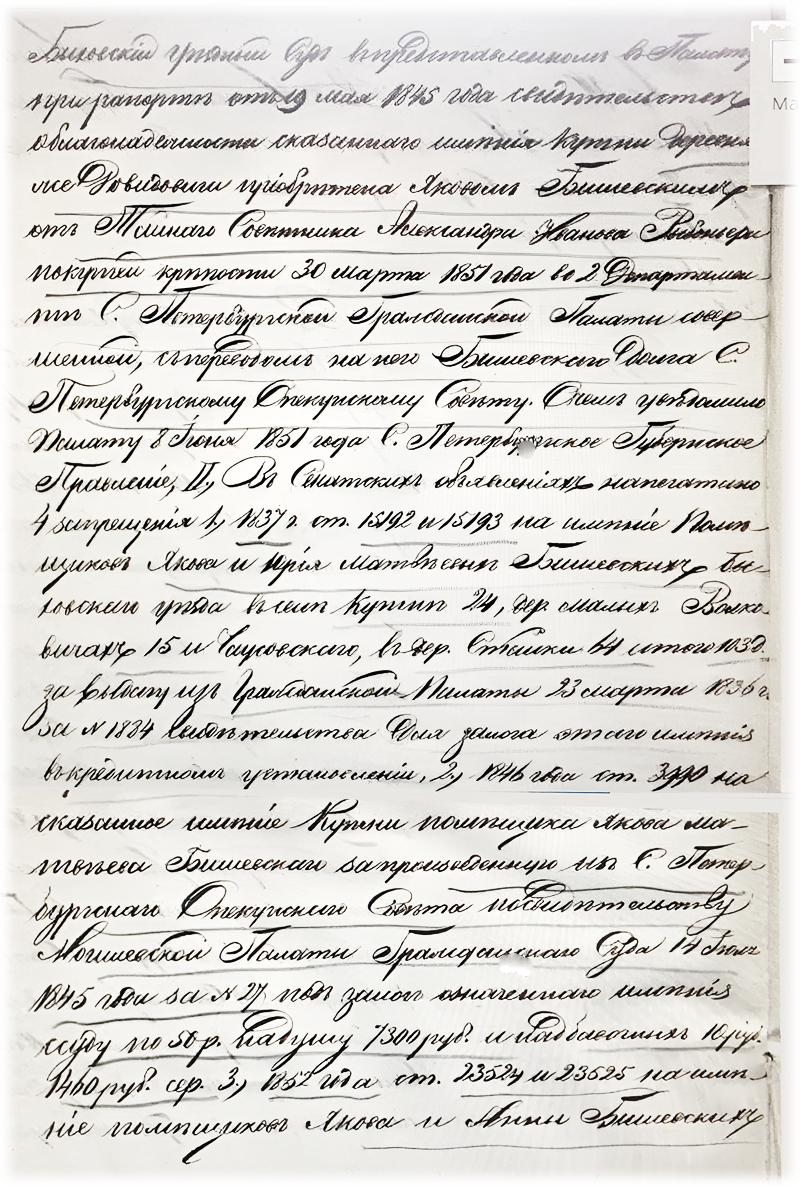 Быховскій уѣздный Судъ въ представленномъ въ Палату
при рапортѣ отъ 19 мая 1845 года свидѣтельствѣ
о благонадежности сказаннаго имѣнія Кутни деревня
же Давидовичи пріобрѣтена Яковомъ Бишевскимъ
отъ Тайнаго Совѣтника Александра Иванова Рибопьера
по купчей крѣпости 30 марта 1851 года во 2 Департамен-
тѣ С. Петербургской Гражданской Палаты совер-
шенной, съ переводомъ на него Бишевскаго долга С.
Петербургскому Опекунскому Совѣту. О чемъ увѣдомило
Палату 8 Іюня 1851 года С. Петербургское Губернское
Правленіе, II., Въ Сенатскихъ объявленіяхъ напечатано
4 запрещенія 1., 1837 г. ст. 15192 и 15193 на имѣніе Помѣ-
щиковъ Якова и Юрія Матвѣевыхъ Бишевскихъ бы-
ховскаго уѣзда въ селѣ Кутнѣ 24, дер. Малыхъ Волко-
вичахъ 15 и Чаусовскаго, въ дер. Стайки 44 итого 103 д.
за выдачу изъ Гражданской Палаты 23 марта 1836 г.
за N 1884 свидѣтельства для залога этаго имѣнія
въ кредитномъ установленіи, 2., 1846 года ст. 3990 на
сказанное имѣніе Кутни помѣщика Якова Ма-
твѣева Бишевскаго за произведенную изъ С. Петер-
бургскаго Опекунскаго Совѣта по свидѣтельству
Могилевской Палаты Гражданскаго Суда 14 Іюля
1845 года за N 27 подъ залогъ означеннаго имѣнія
ссуду по 50 р. на душу 7300 руб. и надбавочныхъ 10 руб.
1460 руб. сер. 3., 1852 года ст. 23524 и 23525 на имѣ-
ніе помѣщиковъ Якова и Анны Бишевскихъ